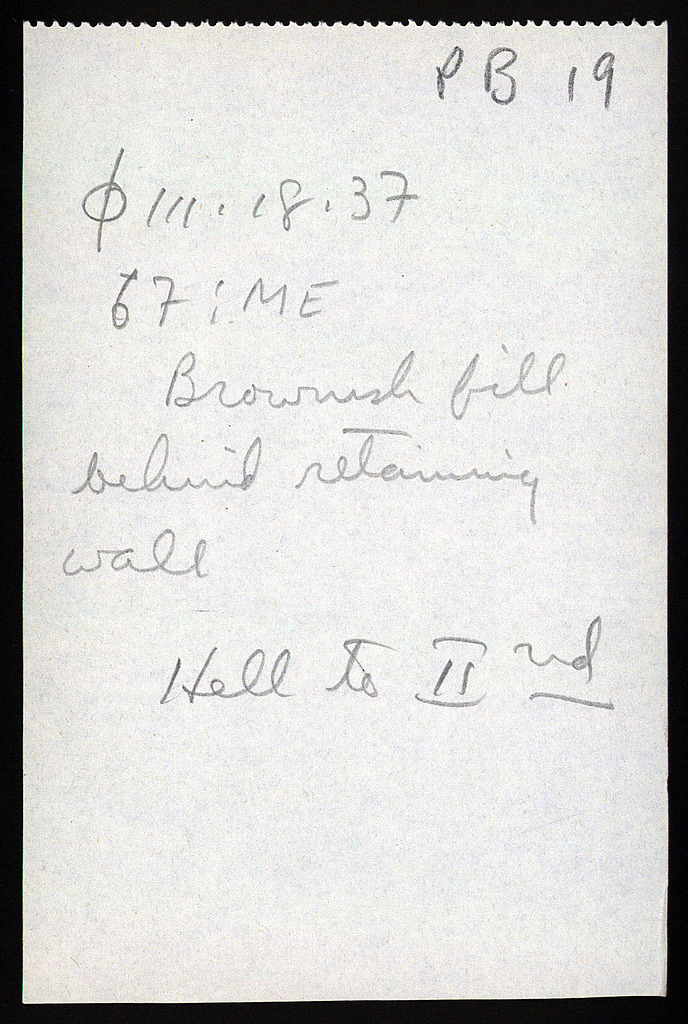 PB 19
φ 111.18.37
67:ME
Brownish fill
behind retaining
wall
Hell to II nd